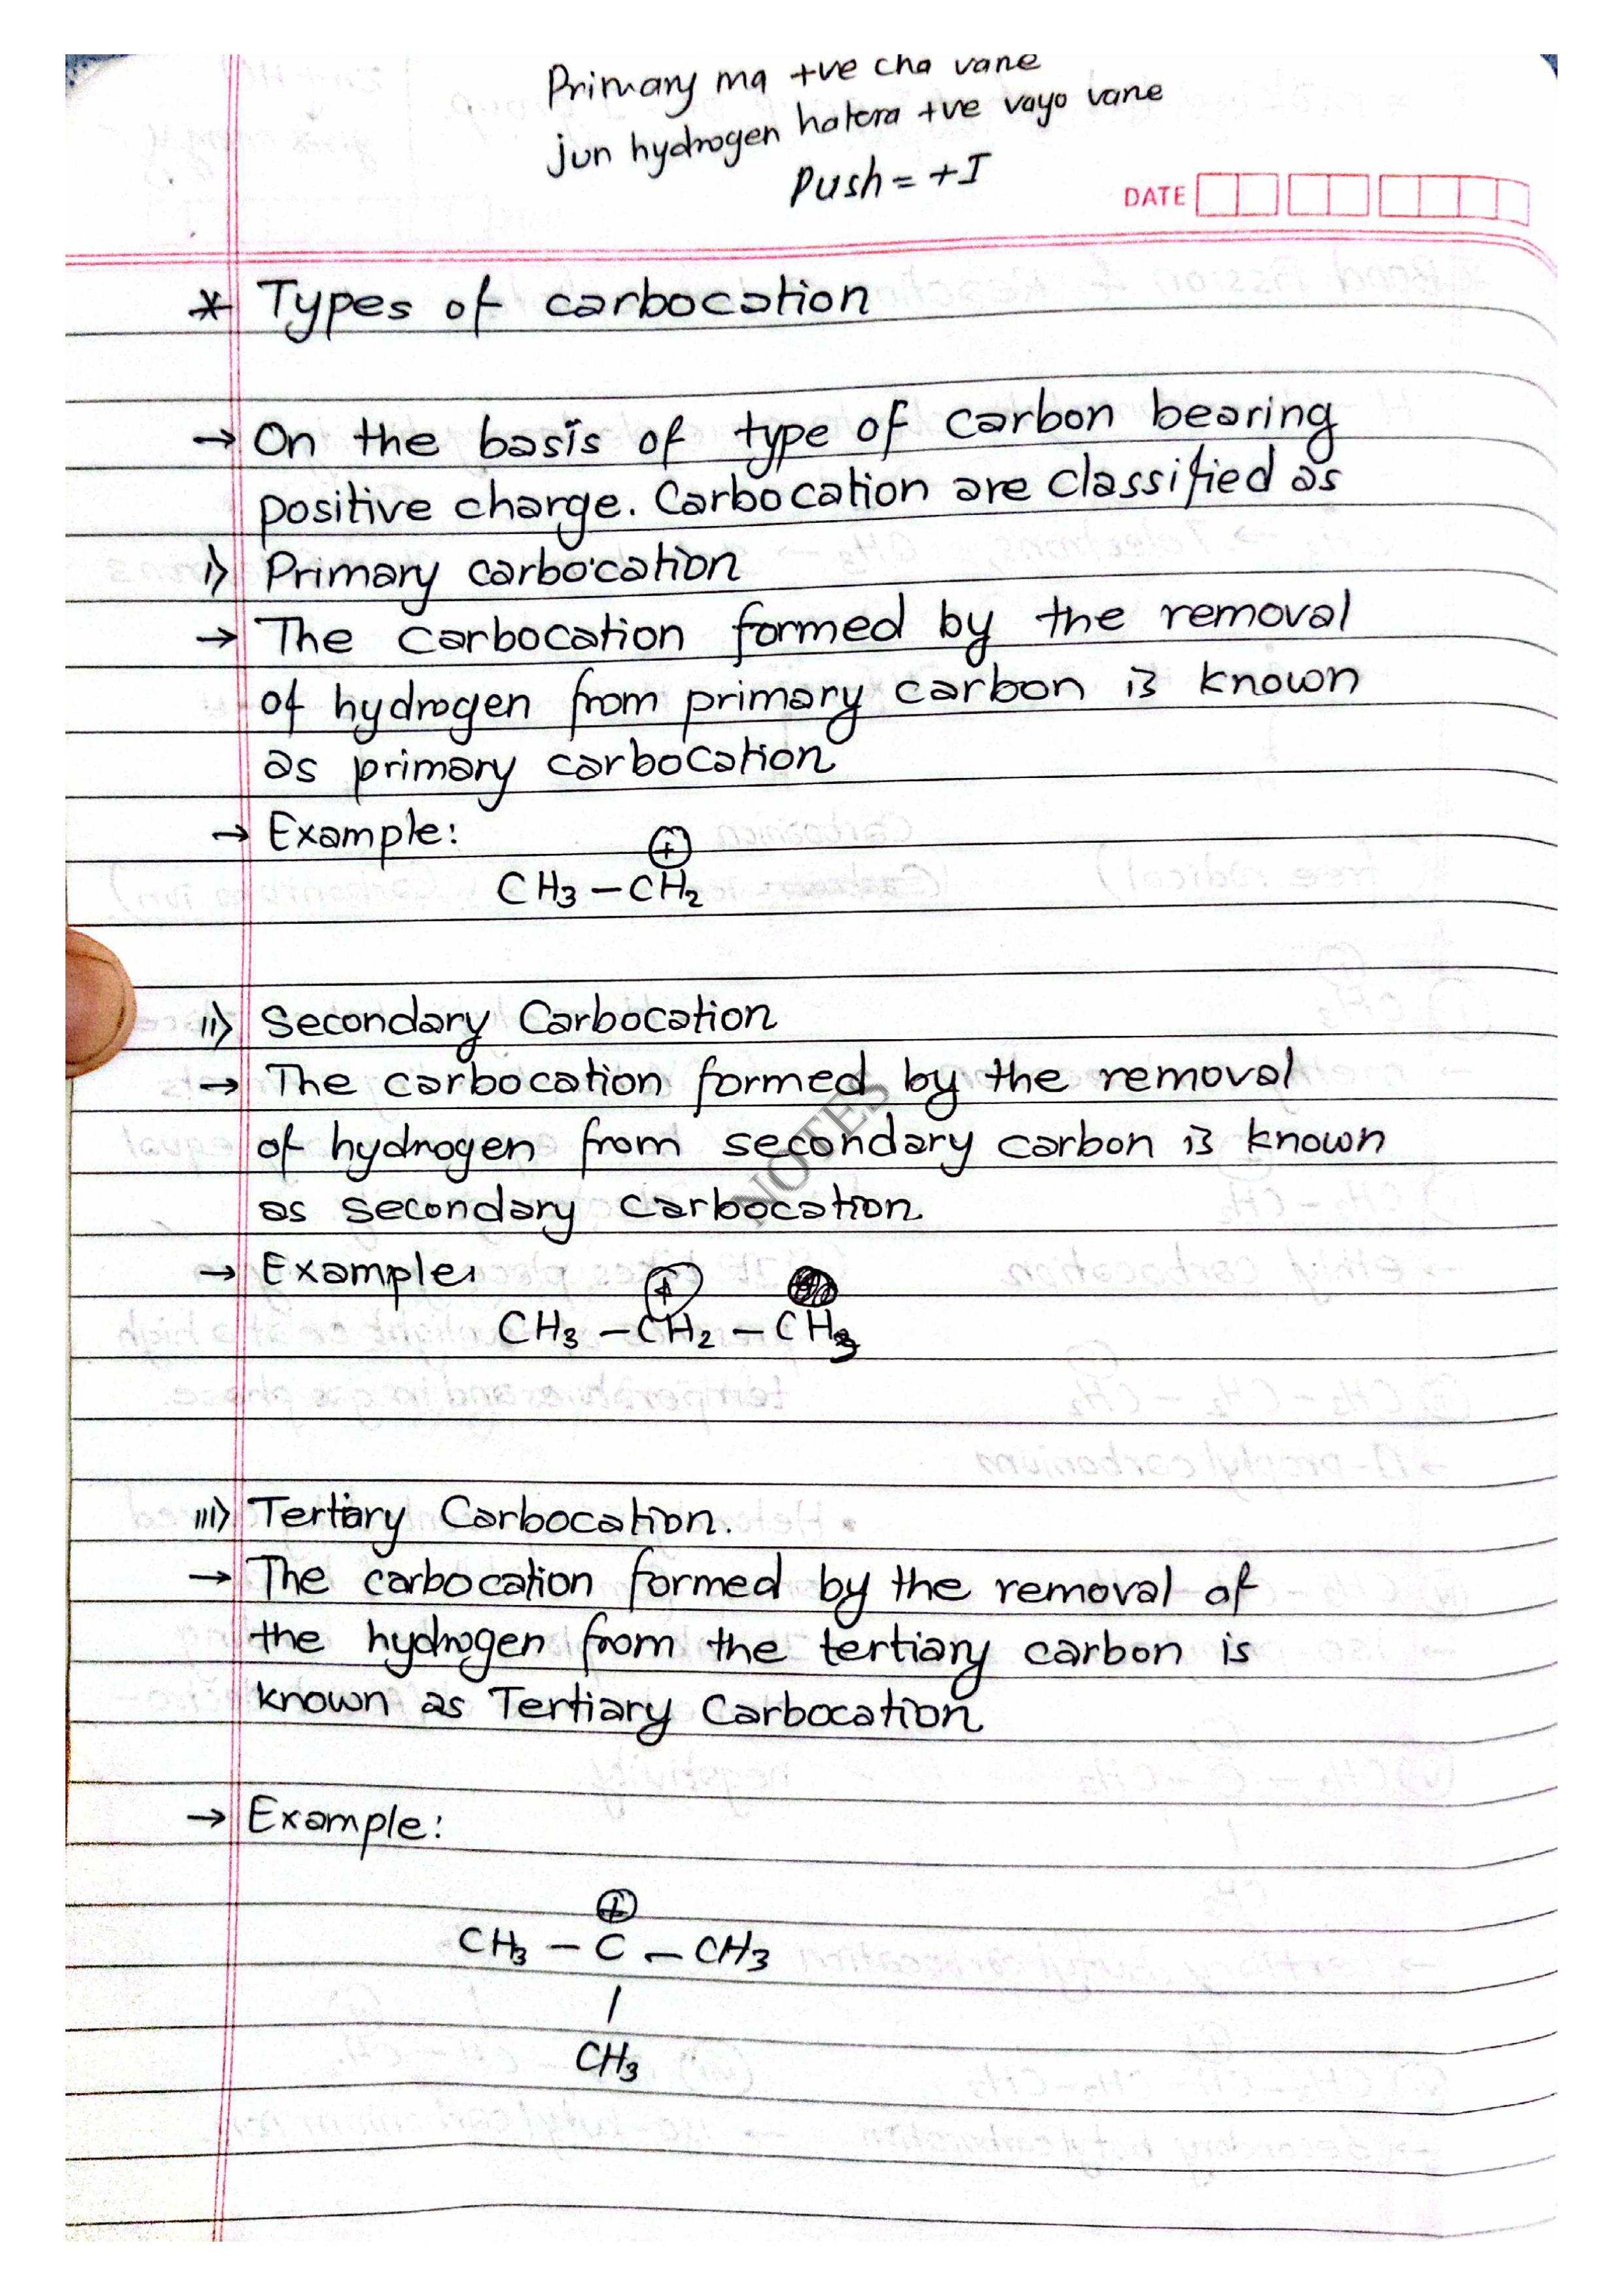 Primary ma +ve cha vane
jun hydrogen hatera +ve vayo vane
Push = +I
DATE
* Types of carbocation
→ On the basis of type of carbon bearing
positive charge. Carbocation are classified as
i) Primary carbocation
→ The carbocation formed by the removal
of hydrogen from primary carbon is known
as primary carbocation
→ Example:
⊕
CH3 – CH2
ii) Secondary Carbocation
→ The carbocation formed by the removal
of hydrogen from secondary carbon is known
as secondary carbocation.
→ Example:
⊕
CH3 – CH2 – CH3
NOTES
iii) Tertiary Carbocation.
→ The carbocation formed by the removal of
the hydrogen from the tertiary carbon is
known as Tertiary Carbocation.
→ Example:
⊕
CH3 – C – CH3
|
CH3